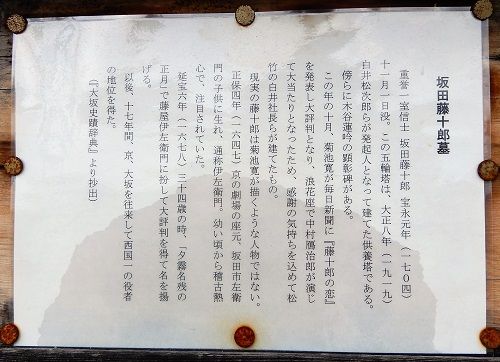 坂田藤十郎墓
重誉一室信士 坂田藤十郎 宝永元年（一七〇四）
十一月一日没。この五輪塔は、大正八年（一九一九）
白井松次郎らが発起人となって建てた供養塔である。
傍らに木谷蓮吟の顕彰碑がある。
この年の十月、菊池寛が毎日新聞に『藤十郎の恋』
を発表し大評判となり、浪花座で中村鴈治郎が演じ
て大当たりとなったため、感謝の気持ちを込めて松
竹の白井社長らが建てたもの。
現実の藤十郎は菊池寛が描くような人物ではない。
正保四年（一六四七）京の劇場の座元、坂田市左衛
門の子供に生れ、通称伊左衛門、幼い頃から稽古熱
心で、注目されていた。
延宝六年（一六七八）三十四歳の時、「夕霧名残の
正月」で藤屋伊左衛門に扮して大評判を得て名を揚
げる。
以後、十七年間、京、大坂を往来して西国一の役者
の地位を得た。
（『大坂史蹟辞典』より抄出）